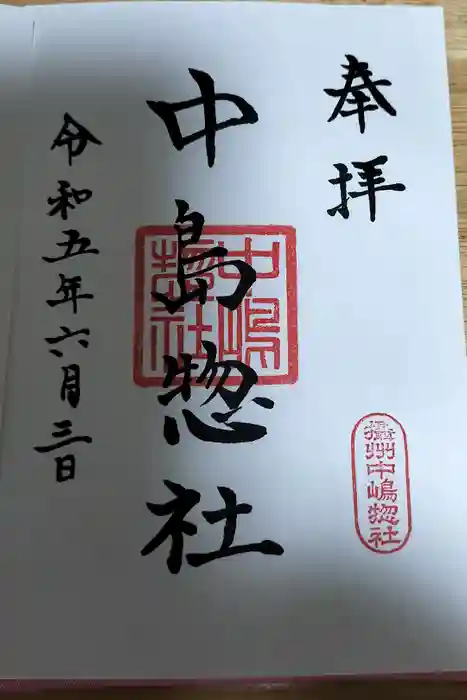 奉拝
攝州中嶋惣社
中島惣社
中嶋惣社
令和五年六月三日